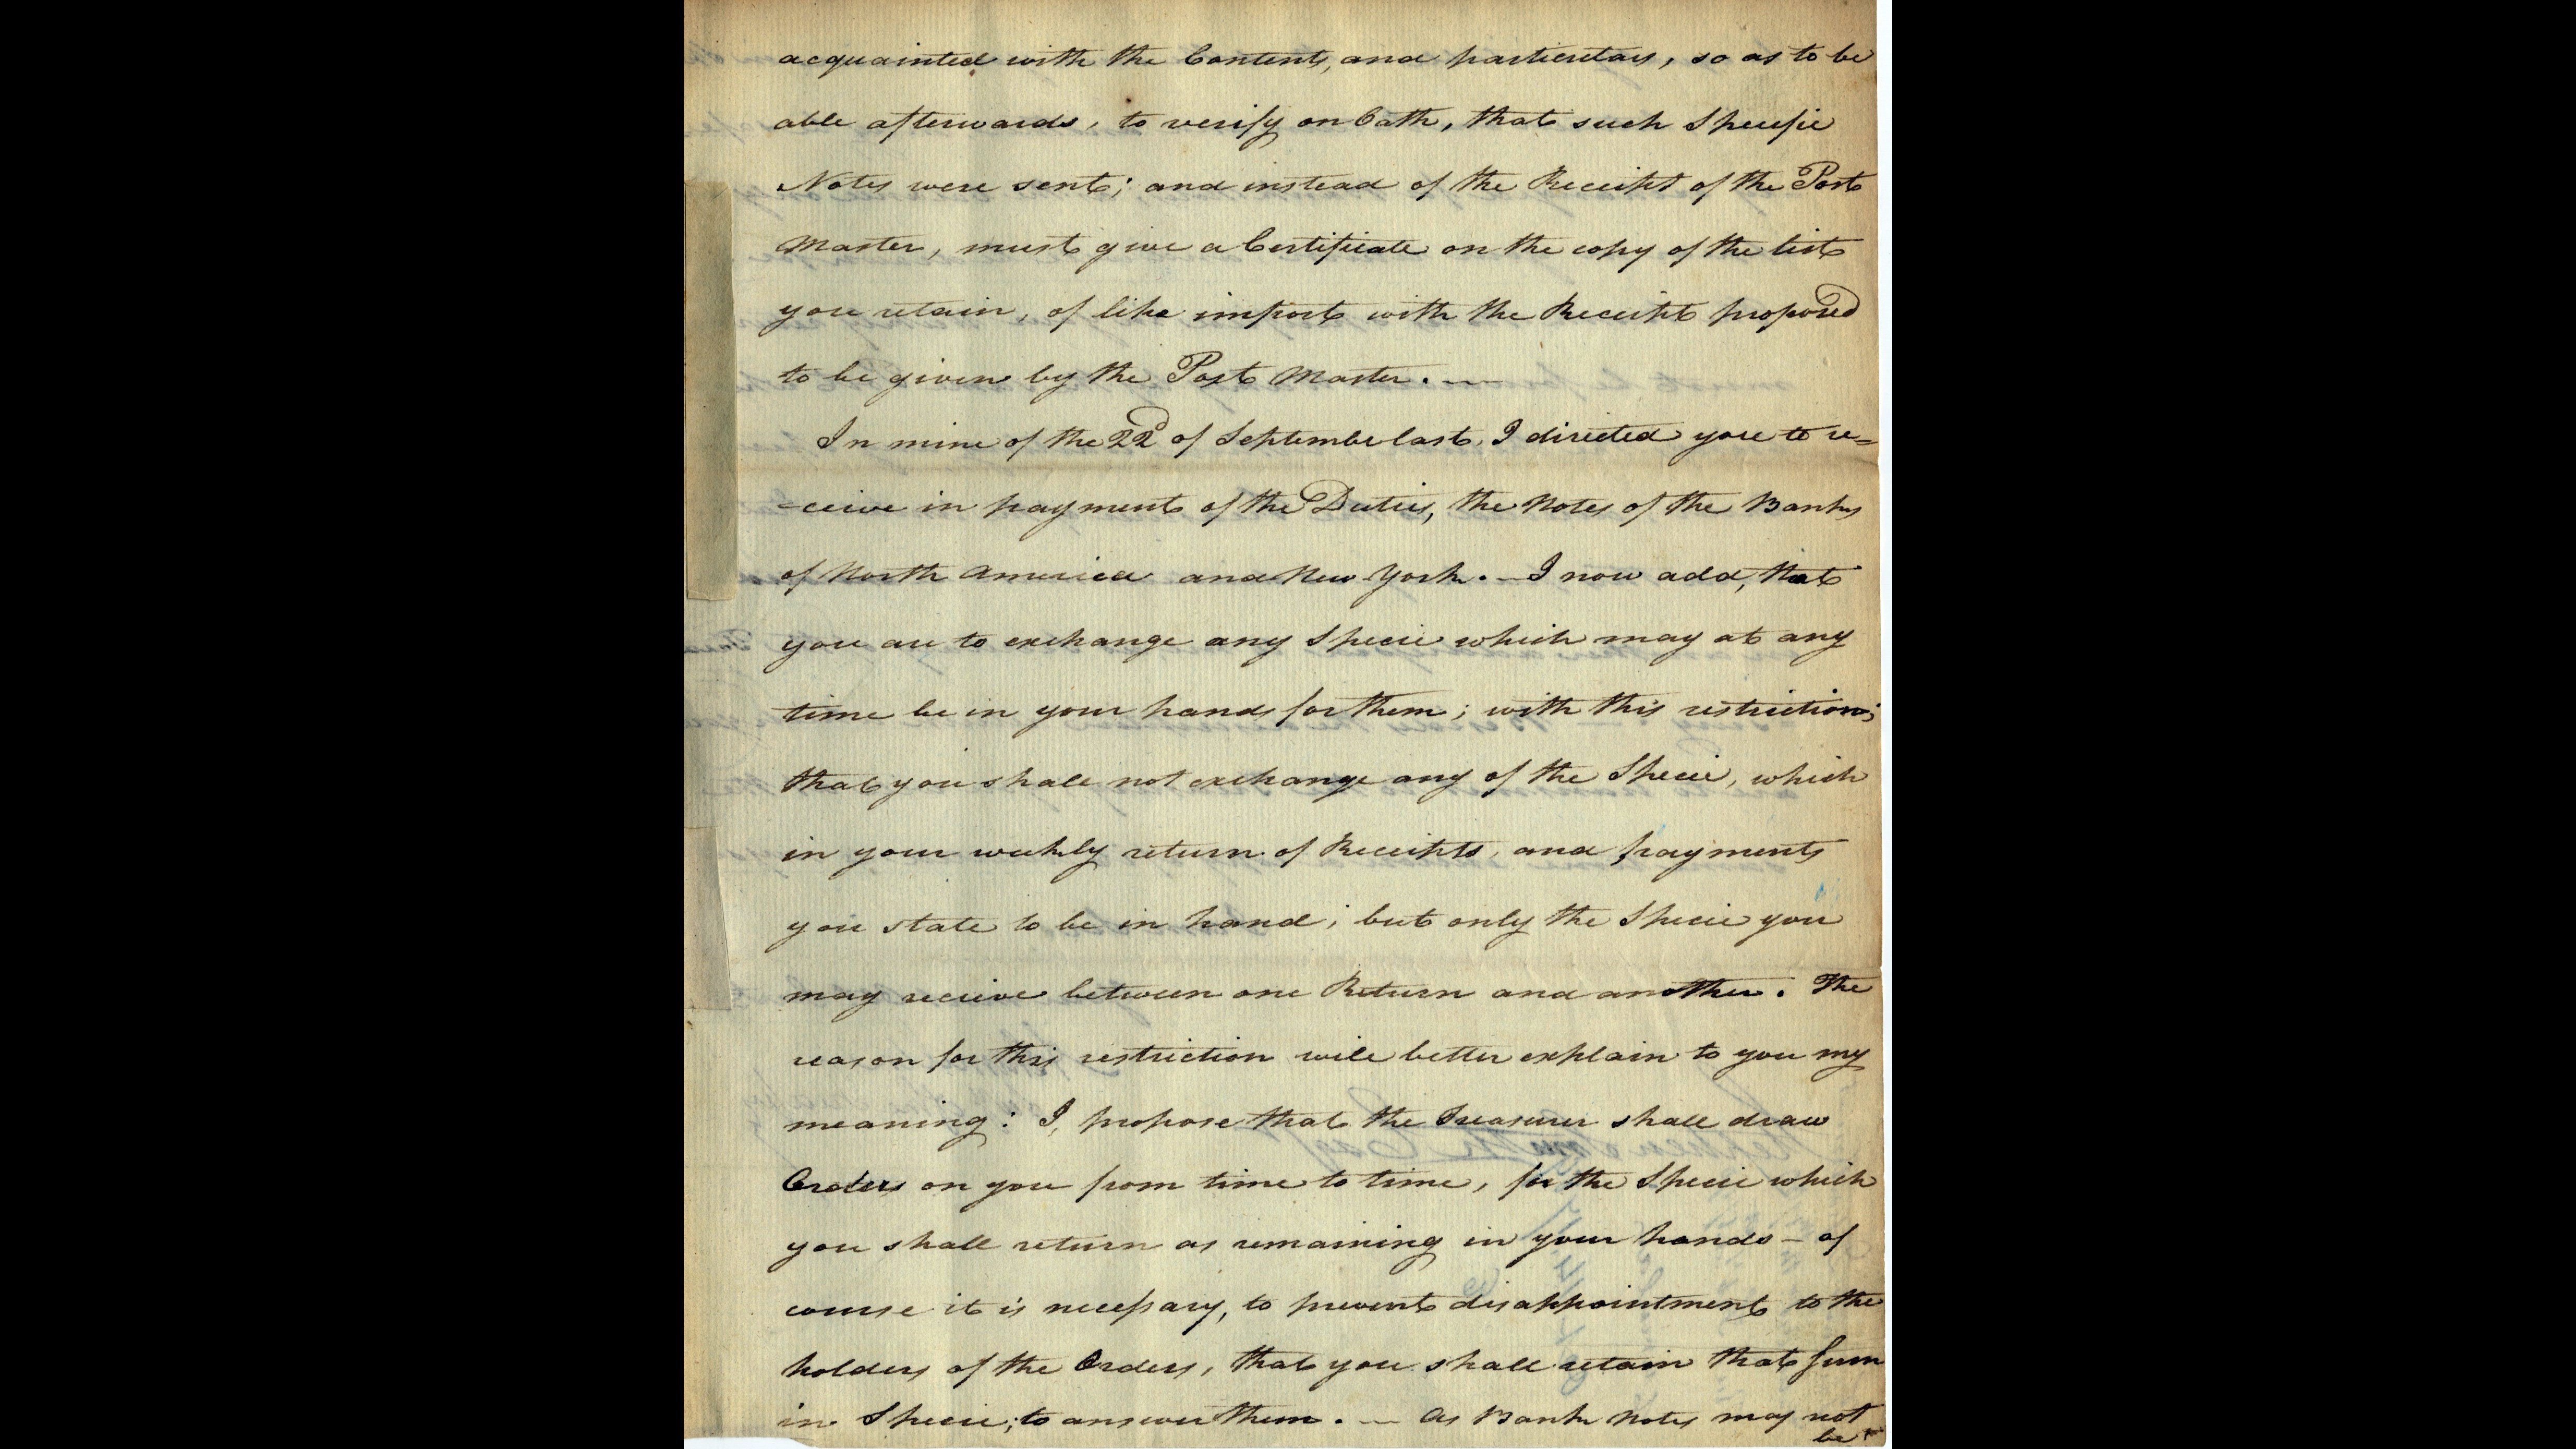 acquainted with the Contents, and particulars, so as to be
able afterwards, to verify on Oath, that such Specific
Notes were sent; and instead of the Receipt of the Post
Master, must give a Certificate on the copy of the list
you retain, of like import with the Receipt proposed
to be given by the Post Master. —
In mine of the 22d of Septembe last, I directed you to re=
=ceive in payment of the Duties, the Notes of the Banks
of North America and New York. — I now add, that
you are to exchange any Specie which may at any
time be in your hands for them; with this restriction;
that you shall not exchange any of the Specie, which
in your weekly return of Receipts, and payments
you state to be in hand; but only the Specie you
may receive between one Return and another. The
reason for this restriction will better explain to you my
meaning: I, propose that the Treasurer shall draw
Orders on you from time to time, for the Specie which
you shall return as remaining in your hands – of
course it is necessary, to prevent disappointment to the
holders of the Orders, that you shall retain that sum
in Specie; to answer them. — As Bank Notes may not
be